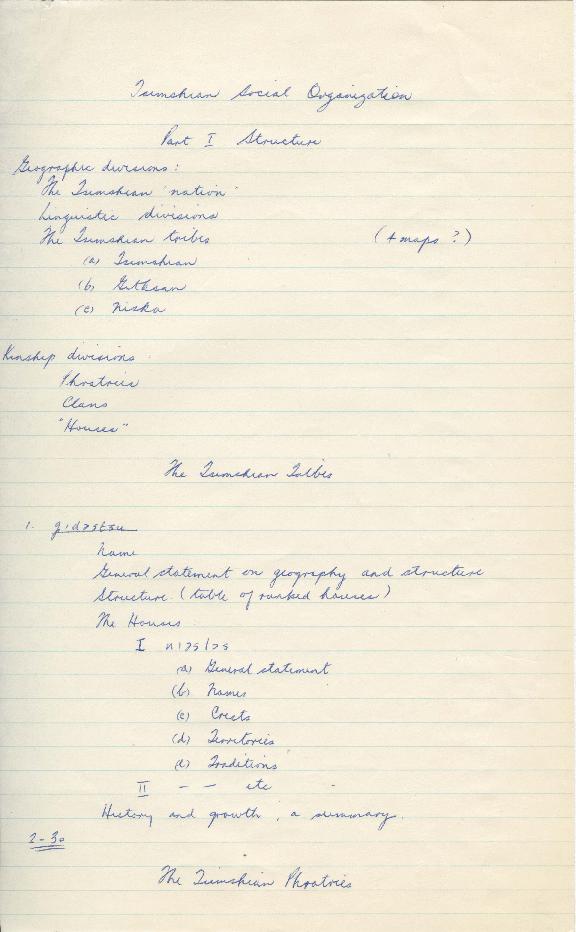 Tsimshian Social Organization
Part I Structure
Geographic divisions:
The Tsimshian 'nation'
Linguistic divisions
The Tsimshian tribes (+ maps ?)
(a) Tsimshian
(b) Gitksan
(c) Niska
Kinship divisions
Phratries
Clans
"Houses"
The Tsimshian Tribes
1.
Name
General statement on geography and structure
Structure (table of ranked houses)
The Houses
I
(a) General statement
(b) Names
(c) Crests
(d) Territories
(e) Traditions
II - - etc
History and growth, a summary.
2-30
The Tsimshian Phratries